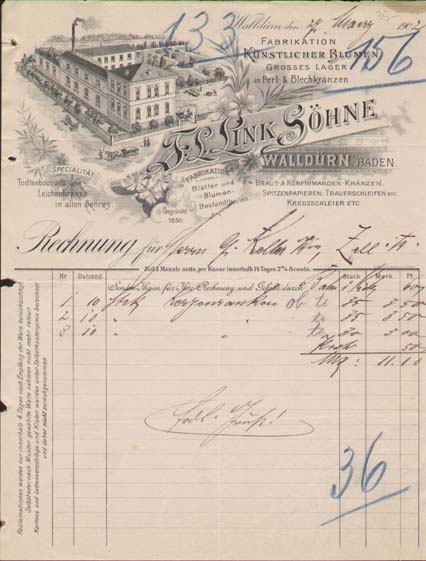 133
Walldürn, den 24 März 1902
156
FABRIKATION
KÜNSTLICHER BLUMEN
GROSSES LAGER
in Perl- & Blechkränzen
F. L. LINK SÖHNE
WALLDÜRN/BADEN.
SPECIALITÄT
Todtenbouquets und
Leichenkränze
in allen Genres
FABRIKATION
Blätter und
Blumen-
Bestandtheilen
Gegründet
1830.
BRAUT- & KONFIRMANDEN-KRÄNZEN,
SPITZENPAPIEREN, TRAUERSCHLEIFEN etc.
KREUZSCHLEIER ETC
Rechnung für Herrn Zell
Ziel 3 Monate netto, per Kassa innerhalb 14 Tagen 2% Sconto.
Nr Dutzend Senden Ihnen für Ihre Rechnung und Gefahr durch Stück Mark Pf
1 10 35 3 50
2 10 35 3 50
3 10 30 3 00
50
11.10
36
Reclamationen werden nur innerhalb 4 Tagen nach Empfang der Ware berücksichtigt
Selbst oder nach Muster gewählte Ware nehmen nicht mehr retour.
Kartons und Lattenverschläge und Kisten werden unter Selbstkostenpreis berechnet
und daher nicht zurückgenommen